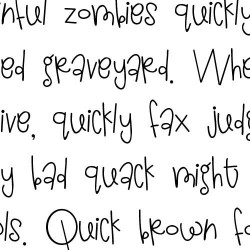 nful zombies quickly
ed graveyard. Whe
ive, quickly fax judg
y bad quack might
ls. Quick brown fo